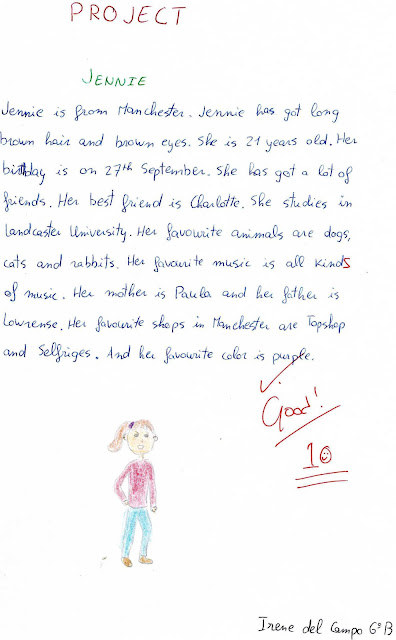 PROJECT
JENNIE
Jennie is from Manchester. Jennie has got long
brown hair and brown eyes. She is 21 years old. Her
birthday is on 27th September. She has got a lot of
friends. Her best friend is Charlotte. She studies in
Landcaster University. Her favourite animals are dogs,
cats and rabbits. Her favourite music is all kinds
of music. Her mother is Paula and her father is
Lowrense. Her favourite shops in Manchester are Topshop
and Selfriges. And her favourite color is purple.
Good!
10
Irene del Campo 6ºB